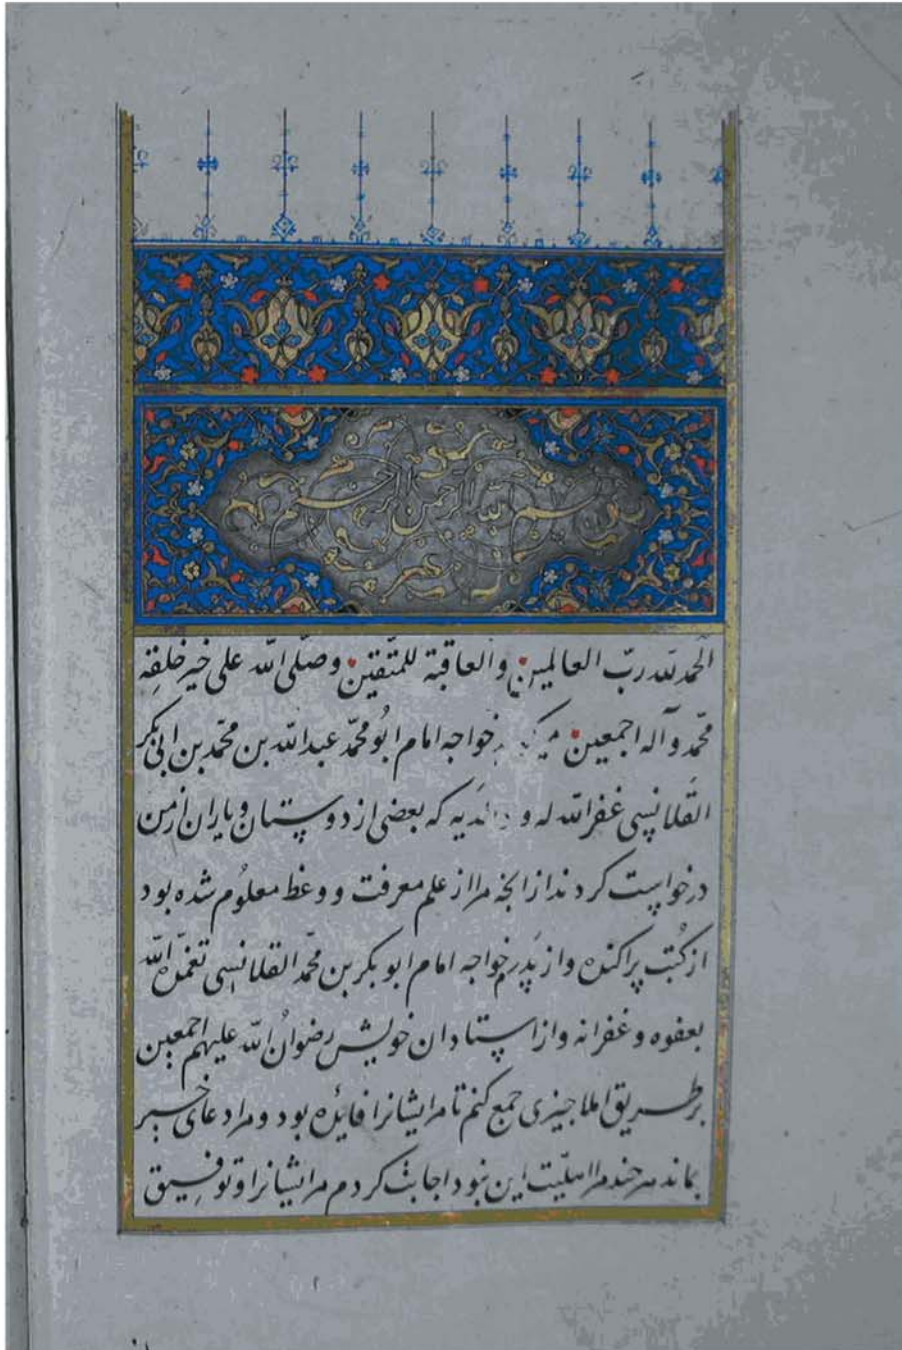 بسم الله الرحمن الرحیم
الحمد لله ربّ العالمین والعاقبة للمتّقین وصلّی الله علی خیر خلقه
محمّد وآله اجمعین میکو خواجه امام ابُو محمّد عبدالله بن محمّد بن ابی بکر
القَلانسِی غفر الله له و والدَیه که بعضی از دوستان و یاران از من
درخواست کردند از انجه مرا از علم معرفت و وعظ معلُوم شده بود
از کُتب پراکنده و از پَدرم خواجه امام ابو بکر بن محمّد القلانسِی تغمّده الله
بعفوه و غفرانه و از استادان خویش رضوانُ الله علیهم اجمعین
بر طریق املا جیزی جمع کنم تا مر ایشانرا فائده بود و مرا دعای خیر
بماند هر جند مرا اهلیّت این نبود اجابت کردم مر ایشانرا و توفیق